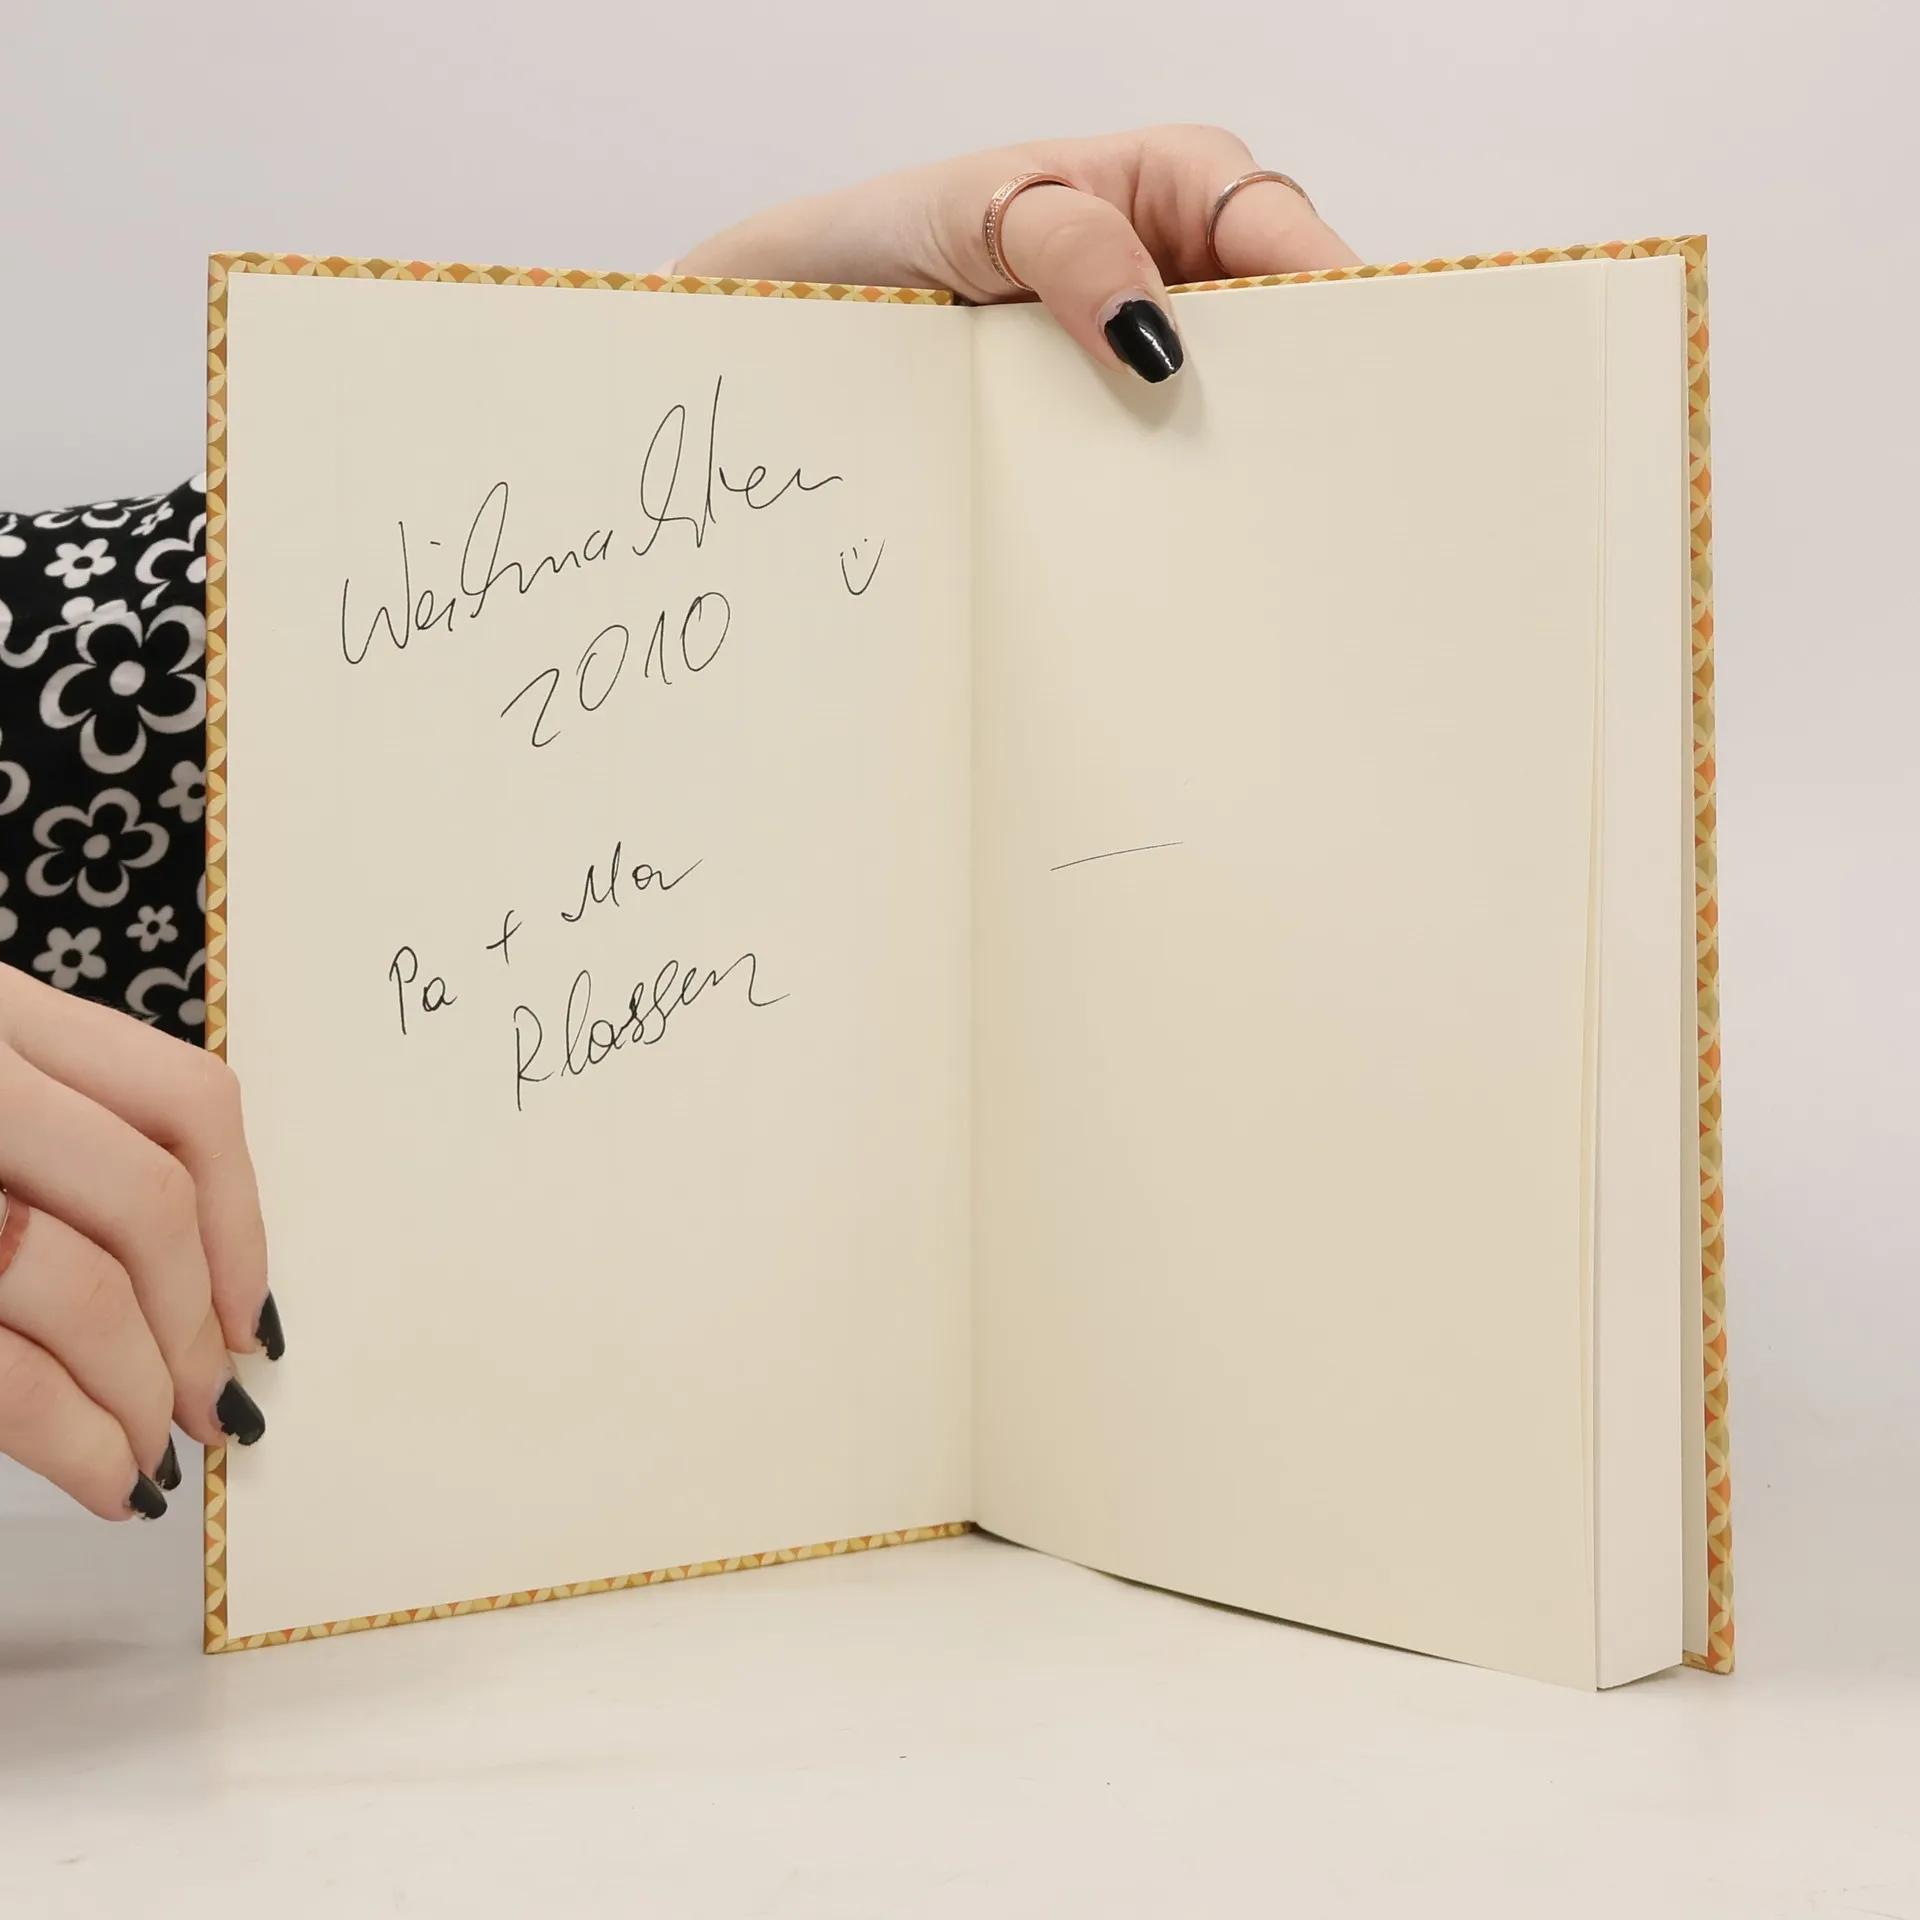 Weihnachten
2010
Pa + Ma
Klassen